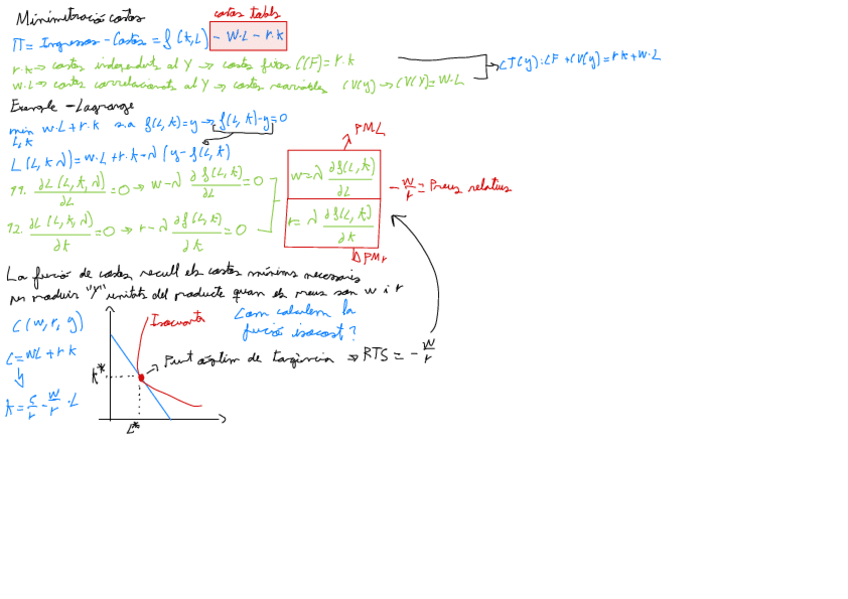 Minimització costos
costos totals
Π = Ingressos - Costos = f(k,L) - w·L - r·k
r·k → costos independents al Y → costos fixos C(F) = r·k
w·L → costos correlacionats al Y → costos variables CV(y) → CV(Y) = w·L
CT(y): CF + CV(y) = r·k + w·L
Exemple - Lagrange
min w·L + r·k s.a f(L,k) = y → f(L,k) - y = 0
L,k
L(L,k,λ) = w·L + r·k + λ(y - f(L,k))
PML
11. ∂L(L,k,λ)/∂L = 0 → w - λ ∂f(L,k)/∂L = 0
w = λ ∂f(L,k)/∂L
- w/r = Preus relatius
12. ∂L(L,k,λ)/∂k = 0 → r - λ ∂f(L,k)/∂k = 0
r = λ ∂f(L,k)/∂k
PMr
La funció de costos, recull els costos mínims necessaris
per produir "Y" unitats del producte quan els preus son w i r
C(w,r,y)
Isocuanta
Com calculem la
funció isocost?
C = wL + rk
k = C/r - w/r · L
Punt òptim de tangència → RTS = - w/r
k*
L*